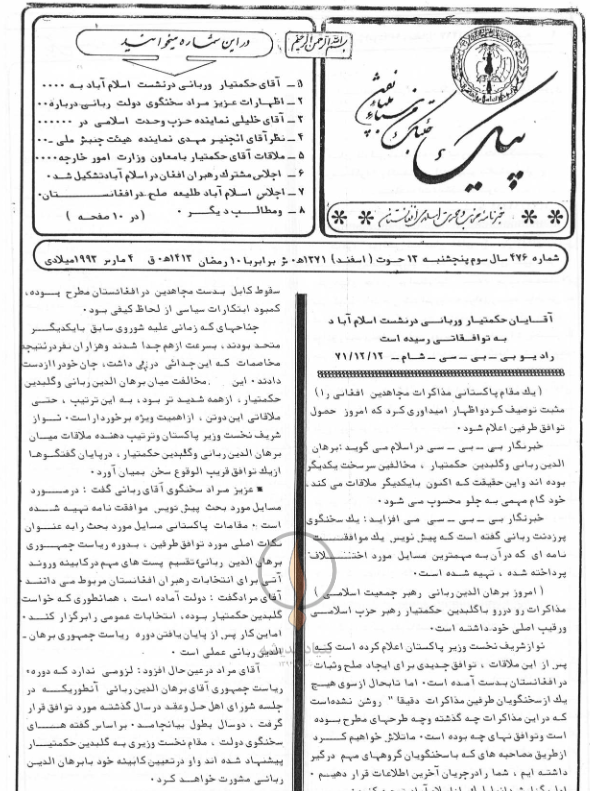 بسم الله الرحمن الرحیم
پیک
خبرنامه
در این شماره میخوانید
۱ – آقای حکمتیار وربانی درنشست اسلام آباد به ۰۰۰۰
۲ – اظهارات عزیز مراد سخنگوی دولت ربانی درباره ۰۰
۳ – آقای خلیلی نماینده حزب وحدت اسلامی در ۰۰۰۰۰۰
۴ – نظر آقای انجنیر مهدی نماینده هیئت جنبش ملی ۰۰
۵ – ملاقات آقای حکمتیار بامعاون وزارت امور خارجه ۰۰۰۰
۶ – اجلاس مشترك رهبران افغان در اسلام آباد تشکیل شد ۰
۷ – اجلاس اسلام آباد طلیعه صلح در افغانستان ۰
۸ – ومطالب دیگر ۰ ( در ۱۰ صفحه )
شماره ۴۷۶ سال سوم پنجشنبه ۱۳ حوت ( اسفند) ۱۳۷۱ه۰ش برابر با ۱۰ رمضان ۱۴۱۳ه۰ق ۴ مارس ۱۹۹۳ میلادی
آقایان حکمتیار وربانی درنشست اسلام آباد
به توافقاتی رسیده است
رادیو بی ـ بی ـ سی ـ شام ـ ۷۱/۱۲/۱۲
( یك مقام پاکستانی مذاکرات مجاهدین افغانی را )
مثبت توصیف کرد و اظهار امیدواری کرد که امروز حصول
توافق طرفین اعلام شود ۰
خبرنگار بی ـ بی ـ سی در اسلام می گوید : برهان
الدین ربانی وگلبدین حکمتیار ، مخالفین سرسخت یکدیگر
بوده اند و این حقیقت که اکنون بایکدیگر ملاقات می کند ،
خود گام مهمی به جلو محسوب می شود ۰
خبرنگار بی ـ بی ـ سی می افزاید : یك سخنگوی
پرزدنت ربانی گفته است که پیش نویس یك موافقت
نامه ای که در آن به مهمترین مسایل مورد اختلاف
پرداخته شده ، تهیه شده است ۰
( امروز برهان الدین ربانی رهبر جمعیت اسلامی )
مذاکرات رو در رو با گلبدین حکمتیار رهبر حزب اسلامی
ورقیب اصلی خود داشته است ۰
نواز شریف نخست وزیر پاکستان اعلام کرده است که
پس از این ملاقات ، توافق جدیدی برای ایجاد صلح وثبات
در افغانستان بدست آمده است ۰ اما تابحال از سوی هیچ
یك از سخنگویان طرفین مذاکرات دقیقا" روشن نشده است
که در این مذاکرات چه گذشته وچه طرحهای مطرح بوده
است وتوافق نهای چه بوده است ۰ ماتلاش خواهیم کرد
از طریق مصاحبه های که با سخنگویان گروههای مهم درگیر
داشته ایم ، شما را در جریان آخرین اطلاعات قرار دهیم ۰
سقوط کابل بدست مجاهدین در افغانستان مطرح بوده ،
کمبود ابتکارات سیاسی از لحاظ کیفی بود ۰
جناحهای که زمانی علیه شوروی سابق بایکدیگر
متحد بودند ، بسرعت از هم جدا شدند وهزاران نفر در نتیجه
مخاصمات که این جدائی در پی داشت، جان خود را از دست
دادند ۰ این مخالفت میان برهان الدین ربانی وگلبدین
حکمتیار ، از همه شدید تر بود ، به این ترتیب ، حتی
ملاقاتی این دوتن ، از اهمیت ویژه برخوردار است ۰ نواز
شریف نخست وزیر پاکستان وترتیب دهنده ملاقات میان
برهان الدین ربانی وگلبدین حکمتیار ، در پایان گفتگوها
از یك توافق قریب الوقوع سخن بمیان آورد ۰
* عزیز مراد سخنگوی آقای ربانی گفت : در مورد
مسایل مورد بحث پیش نویس موافقت نامه تهیه شده
است ۰ مقامات پاکستانی مسایل مورد بحث را به عنوان
نکات اصلی مورد توافق طرفین ، بدوره ریاست جمهوری
برهان الدین ربانی تقسیم پست های مهم در کابینه وروند
آتی برای انتخابات رهبران افغانستان مربوط می دانند ۰
آقای مراد گفت : دولت آماده است ، همانطوری که خواست
گلبدین حکمتیار بوده ، انتخابات عمومی را برگزار کند ۰
اما این کار پس از پایان یافتن دوره ریاست جمهوری برهان ـ
الدین ربانی عملی است ۰
آقای مراد در عین حال افزود : لزومی ندارد که دوره
ریاست جمهوری آقای برهان الدین ربانی آنطوریکه در
جلسه شورای اهل حل وعقد در سال گذشته مورد توافق قرار
گرفت ، دوسال بطول بیانجامد ۰ بر اساس گفته های
سخنگوی دولت ، مقام نخست وزیری به گلبدین حکمتیار
پیشنهاد شده اند واو در تعیین کابینه خود با برهان الدین
ربانی مشورت خواهد کرد ۰